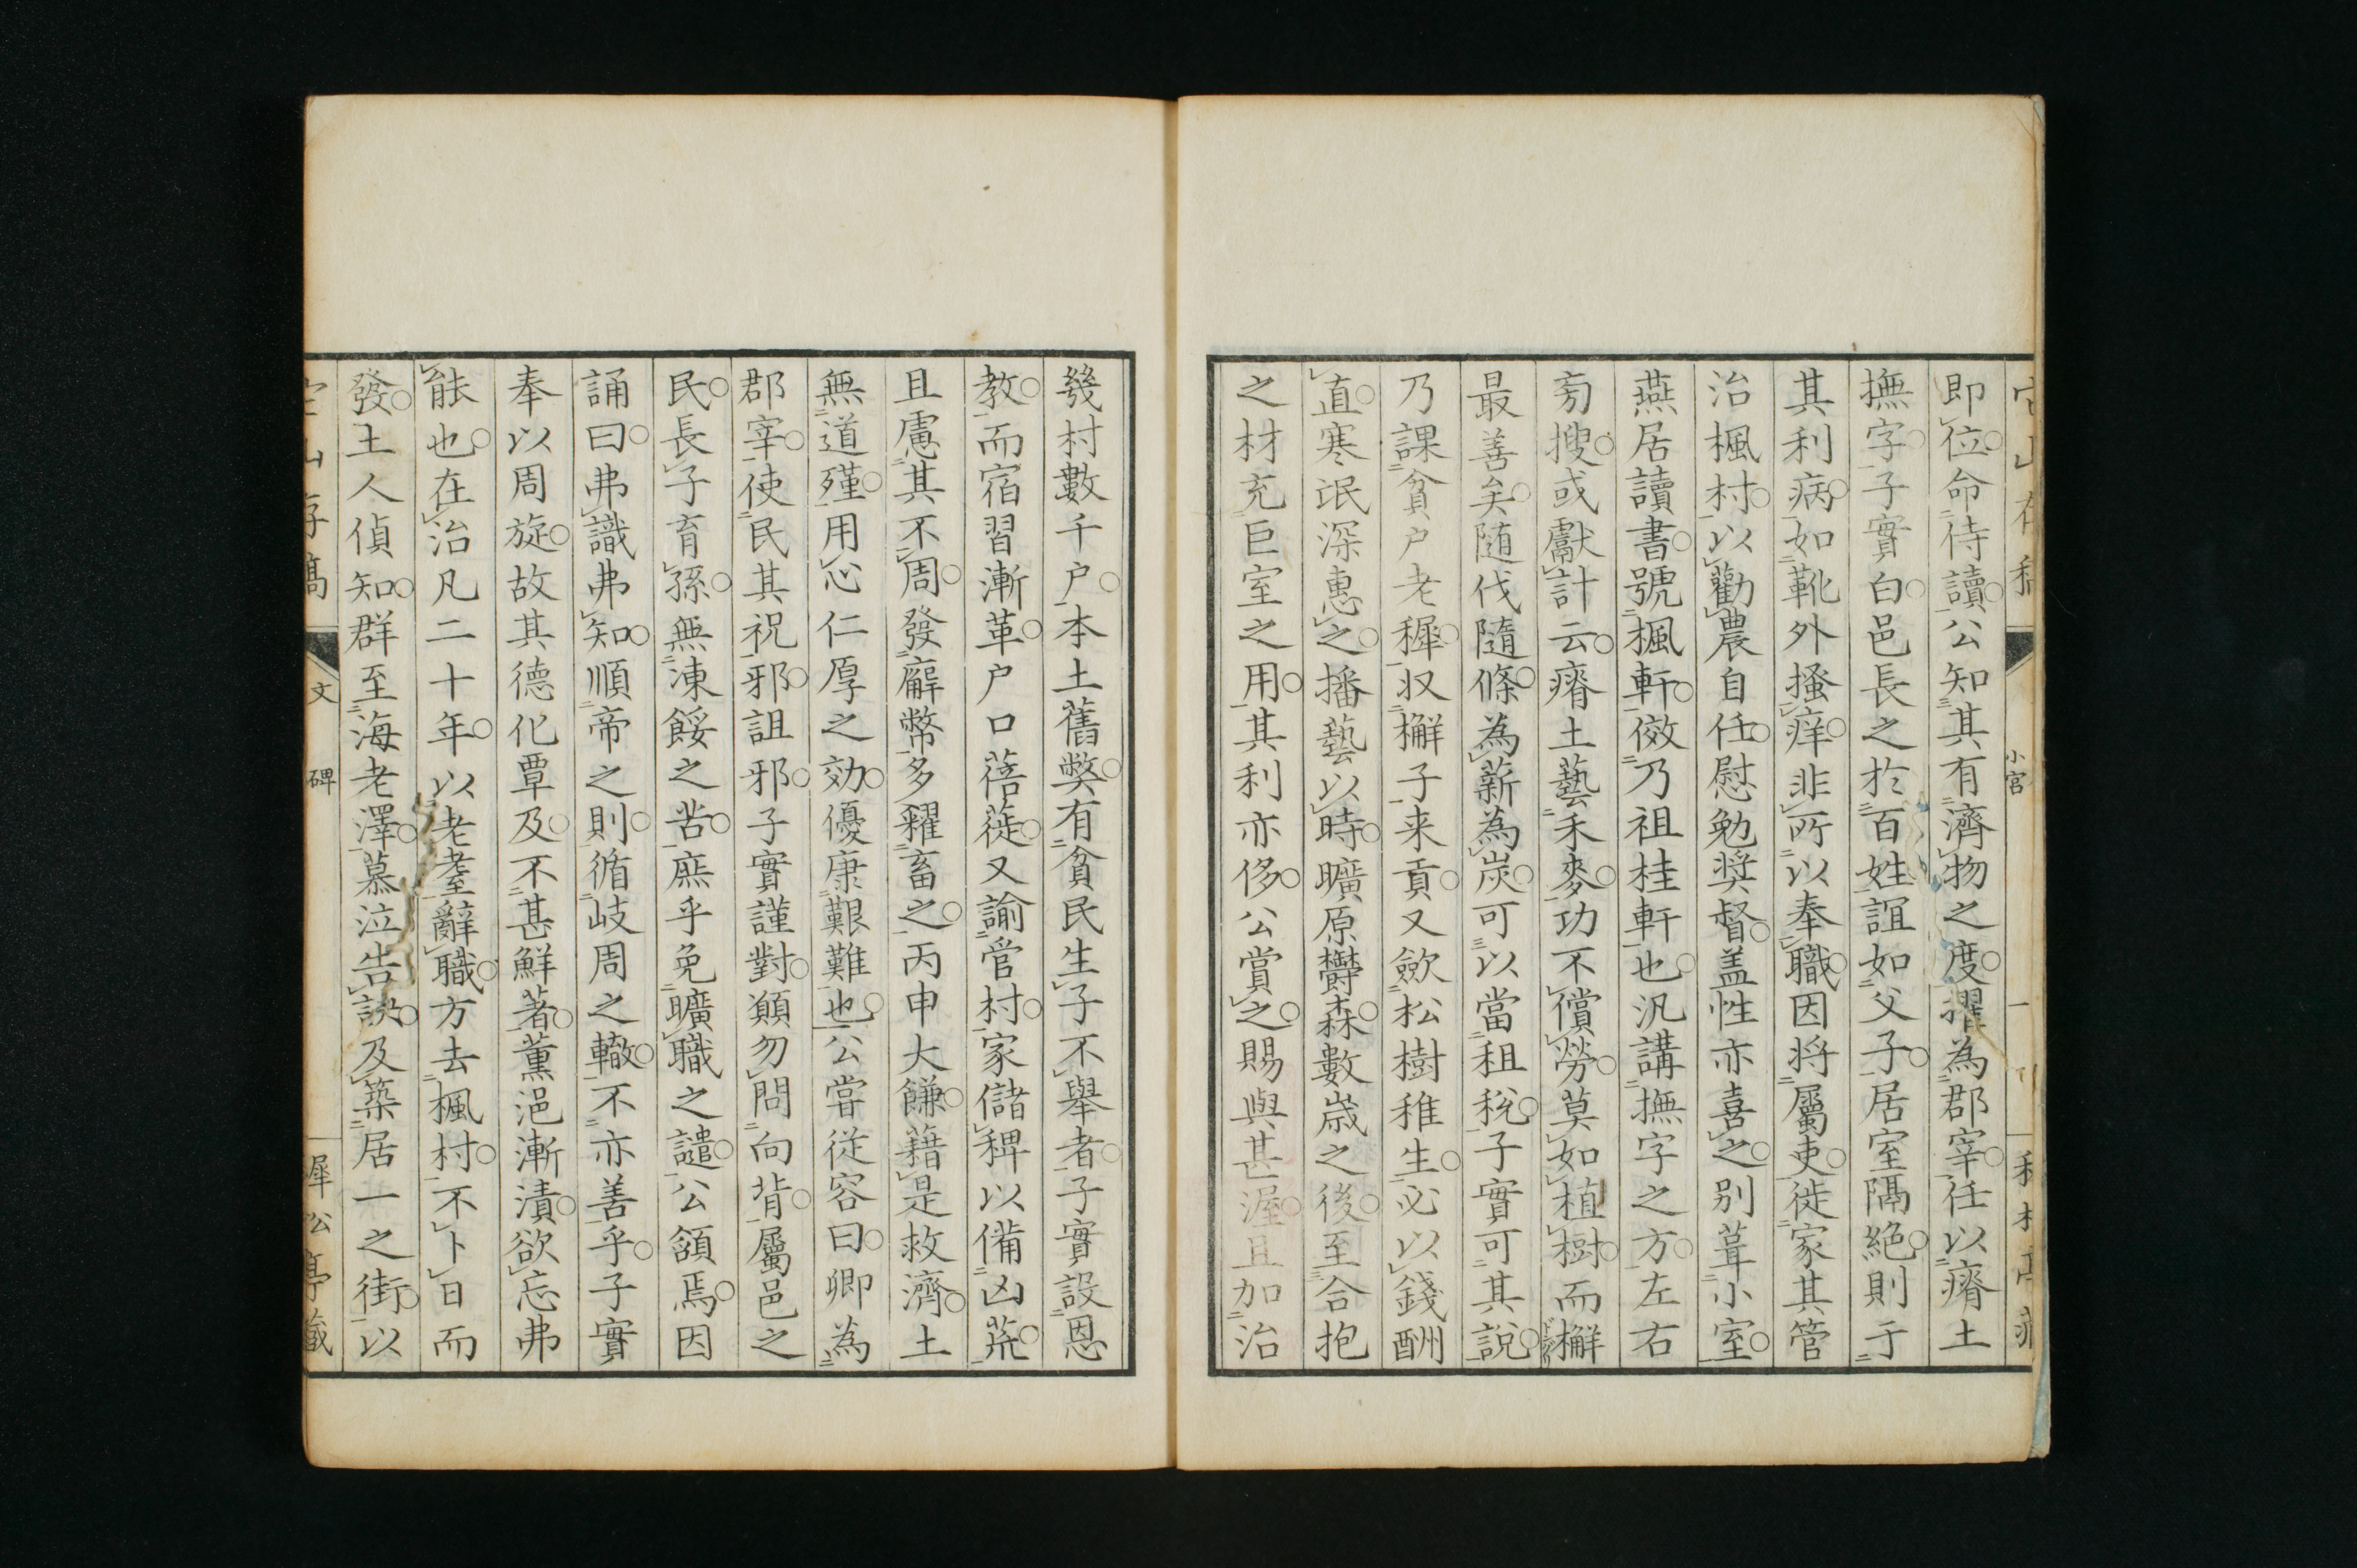 即位命侍讀公知其有濟物之度擢為郡宰任以瘠土
撫字子實白邑長之於百姓誼如父子居室隔絶則于
其利病如靴外搔痒非所以奉職因将屬吏徙家其管
治楓村以勸農自任慰勉奨督盖性亦喜之别葺小室
燕居讀書號楓軒倣乃祖桂軒也汎講撫字之方左右
旁搜或獻計云瘠土藝禾麥功不償勞莫如植樹而檞
最善矣随伐隨條為薪為炭可以當租税子實可其説
乃課貧户老穉収檞子来貢又歛松樹稚生必以錢酬
直寒氓深惠之播藝以時曠原欝森數歳之後至合抱
之材充巨室之用其利亦侈公賞之賜與甚渥且加治
幾村數千户本土舊弊有貧民生子不舉者子實設恩
教而宿習漸革户口蓓蓰又諭管村家儲稗以備凶荒
且慮其不周發廨幣多糴畜之丙申大饑藉是救濟土
無道殣用心仁厚之効優康艱難也公嘗従容曰卿為
郡宰使民其祝邪詛邪子實謹對願勿問向背屬邑之
民長子育孫無凍餒之苦庶乎免曠職之譴公頷焉因
誦曰弗識弗知順帝之則循岐周之轍不亦善乎子實
奉以周旋故其德化覃及不甚鮮著薫浥漸漬欲忘弗
能也在治凡二十年以老耋辭職方去楓村不卜日而
發土人偵知群至海老澤慕泣告訣及築居一之街以
文 碑